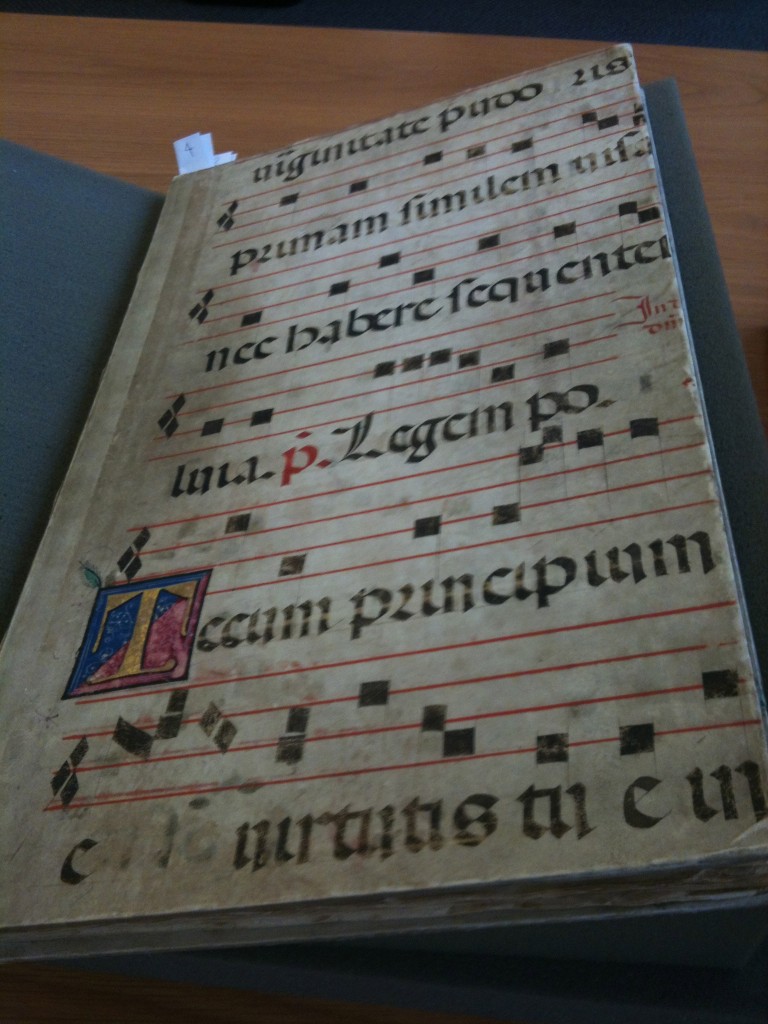 4
uiginitate pudo ris
primam similem uisa
nec habere sequente
luia. ṗ. Legem po.
Tecum principium
uirtutis tu e in